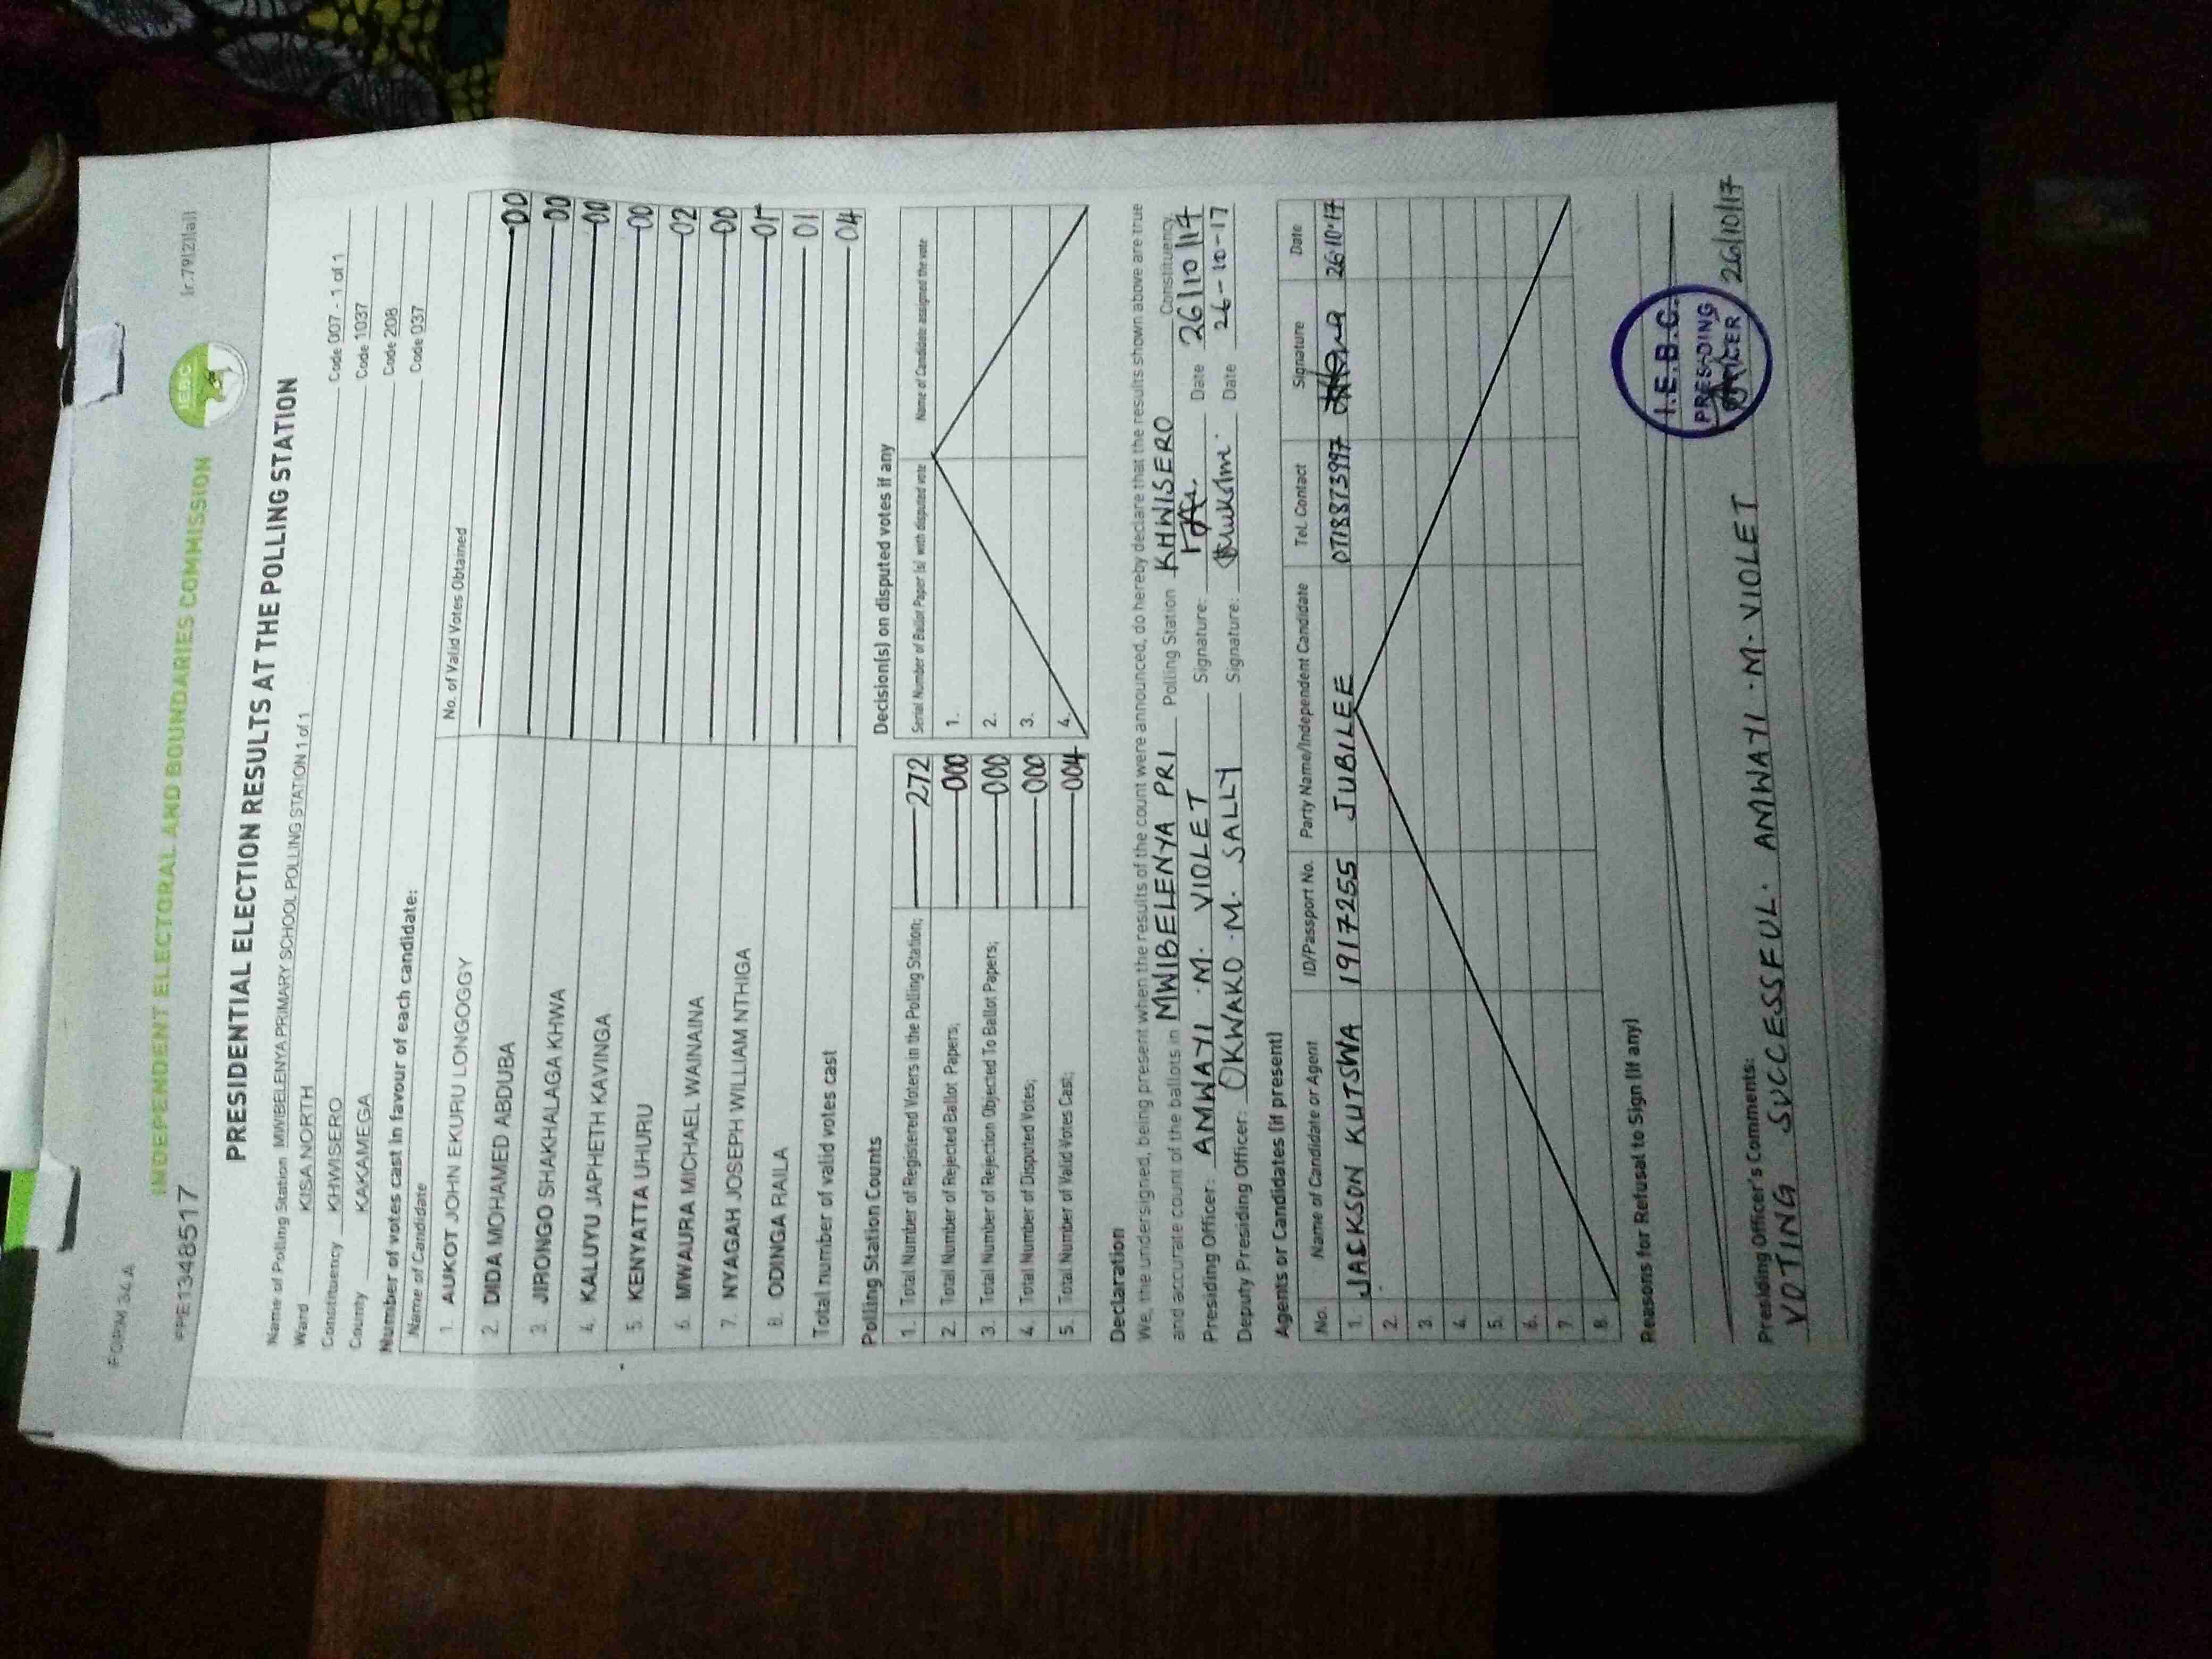 FORM 34 A
(r.79(2)(a))
INDEPENDENT ELECTORAL AND BOUNDARIES COMMISSION
IEBC
PPE1348517
PRESIDENTIAL ELECTION RESULTS AT THE POLLING STATION
Name of Polling Station MWIBELENYA PRIMARY SCHOOL POLLING STATION 1 of 1 Code 007 - 1 of 1
Ward KISA NORTH Code 1037
Constituency KHWISERO Code 208
County KAKAMEGA Code 037
Number of votes cast in favour of each candidate:
Name of Candidate No. of Valid Votes Obtained
1. AUKOT JOHN EKURU LONGOGGY 00
2. DIDA MOHAMED ABDUBA 00
3. JIRONGO SHAKHALAGA KHWA 00
4. KALUYU JAPHETH KAVINGA 00
5. KENYATTA UHURU 02
6. MWAURA MICHAEL WAINAINA 00
7. NYAGAH JOSEPH WILLIAM NTHIGA 01
8. ODINGA RAILA 01
Total number of valid votes cast 04
Polling Station Counts
1. Total Number of Registered Voters in the Polling Station; 272
2. Total Number of Rejected Ballot Papers; 000
3. Total Number of Rejection Objected To Ballot Papers; 000
4. Total Number of Disputed Votes; 000
5. Total Number of Valid Votes Cast; 004
Decision(s) on disputed votes if any
Serial Number of Ballot Paper (s) with disputed vote Name of Candidate assigned the vote
1.
2.
3.
4.
Declaration
We, the undersigned, being present when the results of the count were announced, do hereby declare that the results shown above are true
and accurate count of the ballots in MWIBELENYA PRI Polling Station KHWISERO Constituency.
Presiding Officer: AMWAYI .M. VIOLET Signature: Date 26/10/17
Deputy Presiding Officer: OKWAKO .M. SALLY Signature: Date 26-10-17
Agents or Candidates (if present)
No. Name of Candidate or Agent ID/Passport No. Party Name/Independent Candidate Tel. Contact Signature Date
1. JACKSON KUTSWA 1917255 JUBILEE 0718873997 26.10.17
2.
3.
4.
5.
6.
7.
8.
Reasons for Refusal to Sign (if any)
I.E.B.C.
PRESIDING
OFFICER
26/10/17
Presiding Officer's Comments:
VOTING SUCCESSFUL. AMWAYI .M. VIOLET